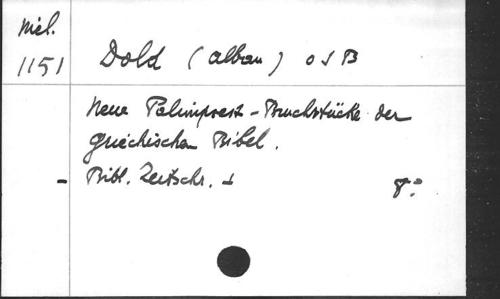 Mél.
1151 Dold (Alban) OSB
Neue Palimpsest-Bruchstücke der
griechischen Bibel.
- Bibl. Zeitschr. 8°